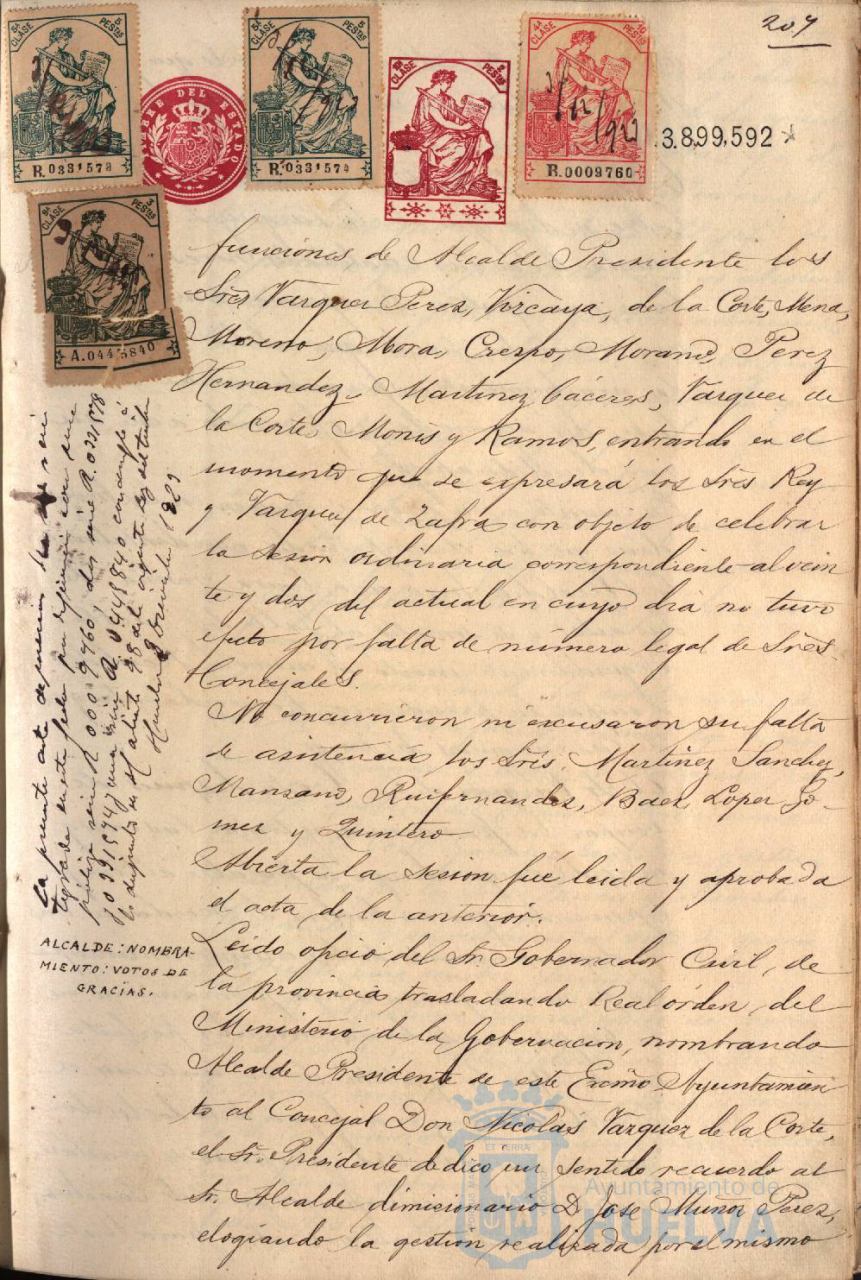 207
5ª CLASE 5 PESTAS
R.0331578
TIMBRE DEL ESTADO
5ª CLASE 5 PESTAS
R.0331574
CLASE PESTAS
4ª CLASE 10 PESTAS
R.0009760
3.899,592
8ª CLASE 3 PESTAS
A.0445840
funciones de Alcalde Presidente los
Sres Vazquez Perez, Vizcaya, de la Corte, Mena,
Moreno, Mora, Crespo, Morano, Perez
Hernandez, Martinez Cáceres, Vazquez de
la Corte, Monis y Ramos, entrando en el
momento que se expresará los Sres Rey
y Vazquez de Zafra con objeto de celebrar
la sesion ordinaria correspondiente al vein
te y dos del actual en cuyo dia no tuvo
efecto por falta de número legal de Sres.
Concejales.
No concurrieron ni excusaron su falta
de asistencia los Sres. Martinez Sanchez,
Manzano, Ruifernandez, Baez, Lopez Go-
mez y Quintero
Abierta la sesion fué leida y aprobada
el acta de la anterior.
Leido oficio del Sr. Gobernador Civil, de
la provincia trasladando Real órden, del
Ministerio de la Gobernacion, nombrando
Alcalde Presidente de este Excmo Ayuntamien
to al Concejal Don Nicolás Vazquez de la Corte,
el Sr. Presidente dedicó un sentido recuerdo al
Sr. Alcalde dimisionario D. Jose Muñoz Perez,
elogiando la gestion realizada por el mismo
La presente acta
tegrada en esta fecha por
póliza serie R. 0009760, dos serie R. 0331578
y 0331574 y una serie A. 0445840 con arreglo á
lo dispuesto en el 98 de la vigente ley del timbre
Huelva 2 Diciembre 1922
ALCALDE: NOMBRA-
MIENTO: VOTOS DE
GRACIAS.
Ayuntamiento de
HUELVA